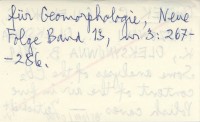 für Geomorphologie, Neue
Folge Band 13, nr 3: 267-
-286.